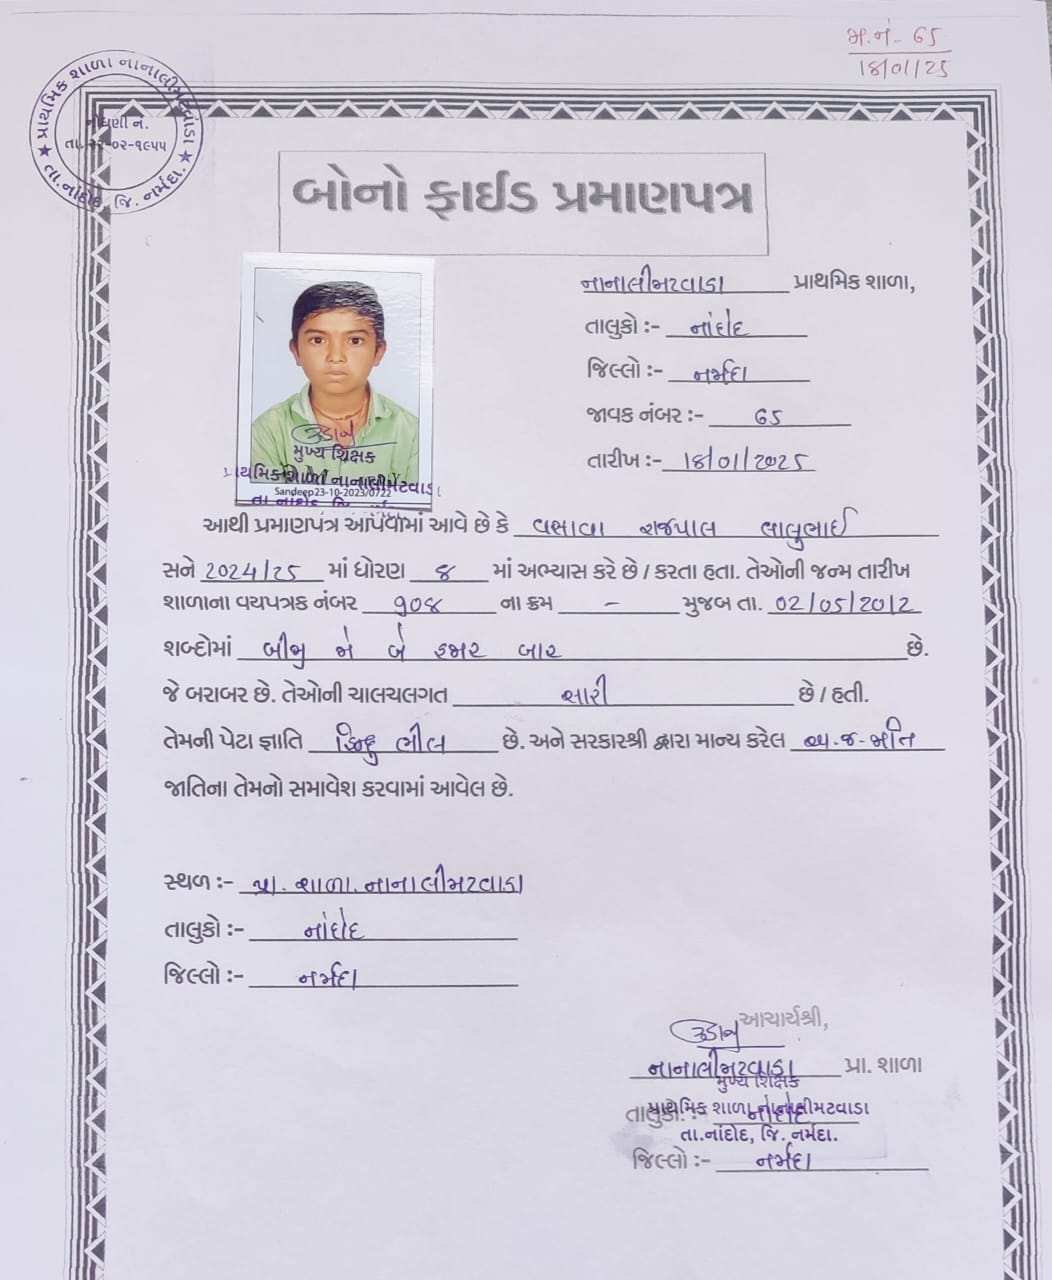 મ.નં- 65
18/01/25
પ્રાથમિક શાળા નાનાલીમટવાડા
નોંધણી નં.
તા. ૨૨-૦૨-૧૯૫૫
તા.નાંદોદ, જિ. નર્મદા.
બોનો ફાઈડ પ્રમાણપત્ર
નાનાલીમટવાડા પ્રાથમિક શાળા,
તાલુકો :- નાંદોદ
જિલ્લો :- નર્મદા
જાવક નંબર :- 65
તારીખ :- 18/01/2025
મુખ્ય શિક્ષક
પ્રાથમિક શાળા નાનાલીમટવાડા
Sandeep23-10-2023/0722
તા. નાંદોદ જિ.
આથી પ્રમાણપત્ર આપવામાં આવે છે કે વસાવા રાજપાલ લાલુભાઈ
સને 2024/25 માં ધોરણ ૭ માં અભ્યાસ કરે છે / કરતા હતા. તેઓની જન્મ તારીખ
શાળાના વયપત્રક નંબર ૧૦૪ ના ક્રમ - મુજબ તા. 02/05/2012
શબ્દોમાં બીજી મે બે હજાર બાર છે.
જે બરાબર છે. તેઓની ચાલચલગત સારી છે / હતી.
તેમની પેટા જ્ઞાતિ હિન્દુ ભીલ છે. અને સરકારશ્રી દ્વારા માન્ય કરેલ અ.જ-જાતિ
જાતિના તેમનો સમાવેશ કરવામાં આવેલ છે.
સ્થળ :- પ્રા. શાળા. નાનાલીમટવાડા
તાલુકો :- નાંદોદ
જિલ્લો :- નર્મદા
આચાર્યશ્રી,
નાનાલીમટવાડા પ્રા. શાળા
મુખ્ય શિક્ષક
તાલુકો :- નાંદોદ
પ્રાથમિક શાળા નાનાલીમટવાડા
તા.નાંદોદ, જિ. નર્મદા.
જિલ્લો :- નર્મદા